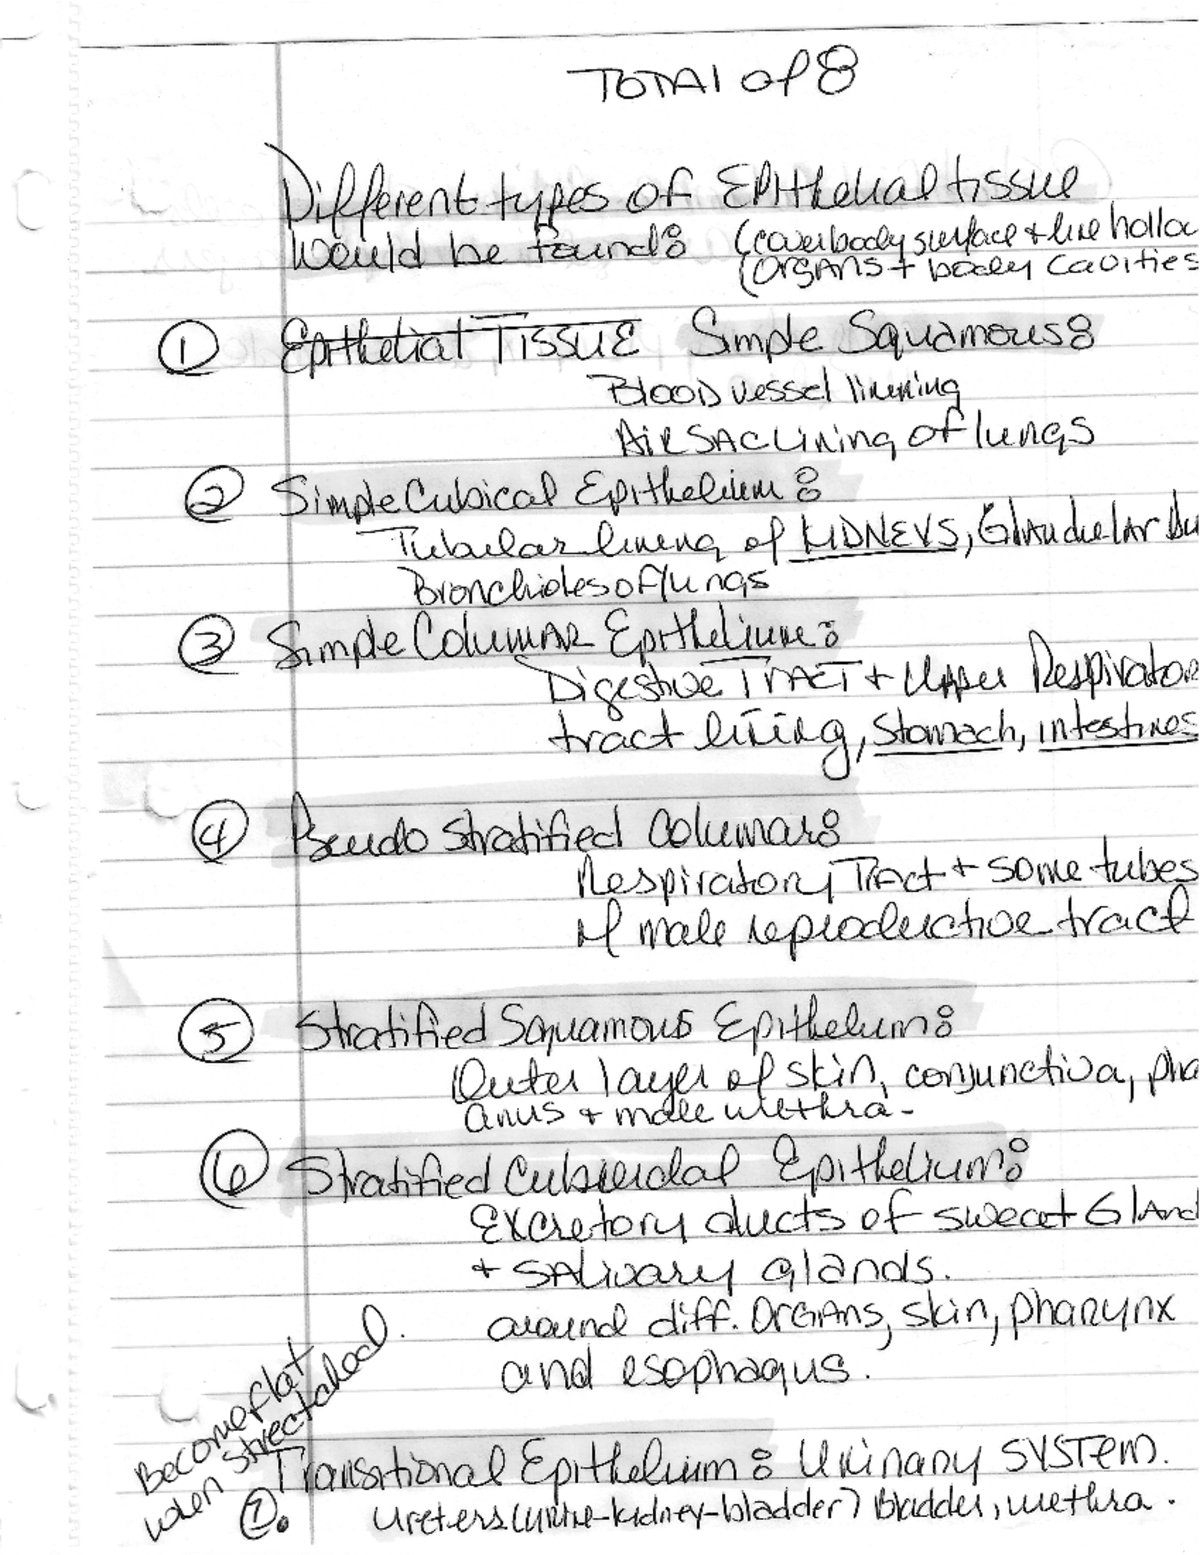 TOTAl of 8
Different types of Epithelial tissue
would be found: (cover body surface + line hollo
(ORGANS + body cavities
① Epithelial Tissue Simple Squamous:
Blood vessel linining
AiR SAC lining of lungs
② Simple Cubical Epithelium:
Tubular lining of KIDNEYS, Glandular Du
Bronchioles of lungs
③ Simple Columar Epithelium:
Digestive TRACT + Upper Respirator
tract lining, Stomach, intestines
④ Pseudo Stratified Columar:
Respiratory Tract + some tubes
of male reproductive tract
⑤ Stratified Squamous Epithelum:
Outer layer of skin, conjunctiva, pha
anus + male urethra -
⑥ Stratified Cuboidal Epithelium:
Excretory ducts of sweat Gland
+ salivary glands.
around diff. ORGANS, skin, pharynx
and esophagus.
Become flat
when stretched.
⑦. Transitional Epithelium: Urinary SYSTEM.
ureters (urine-kidney-bladder) Bladder, urethra.